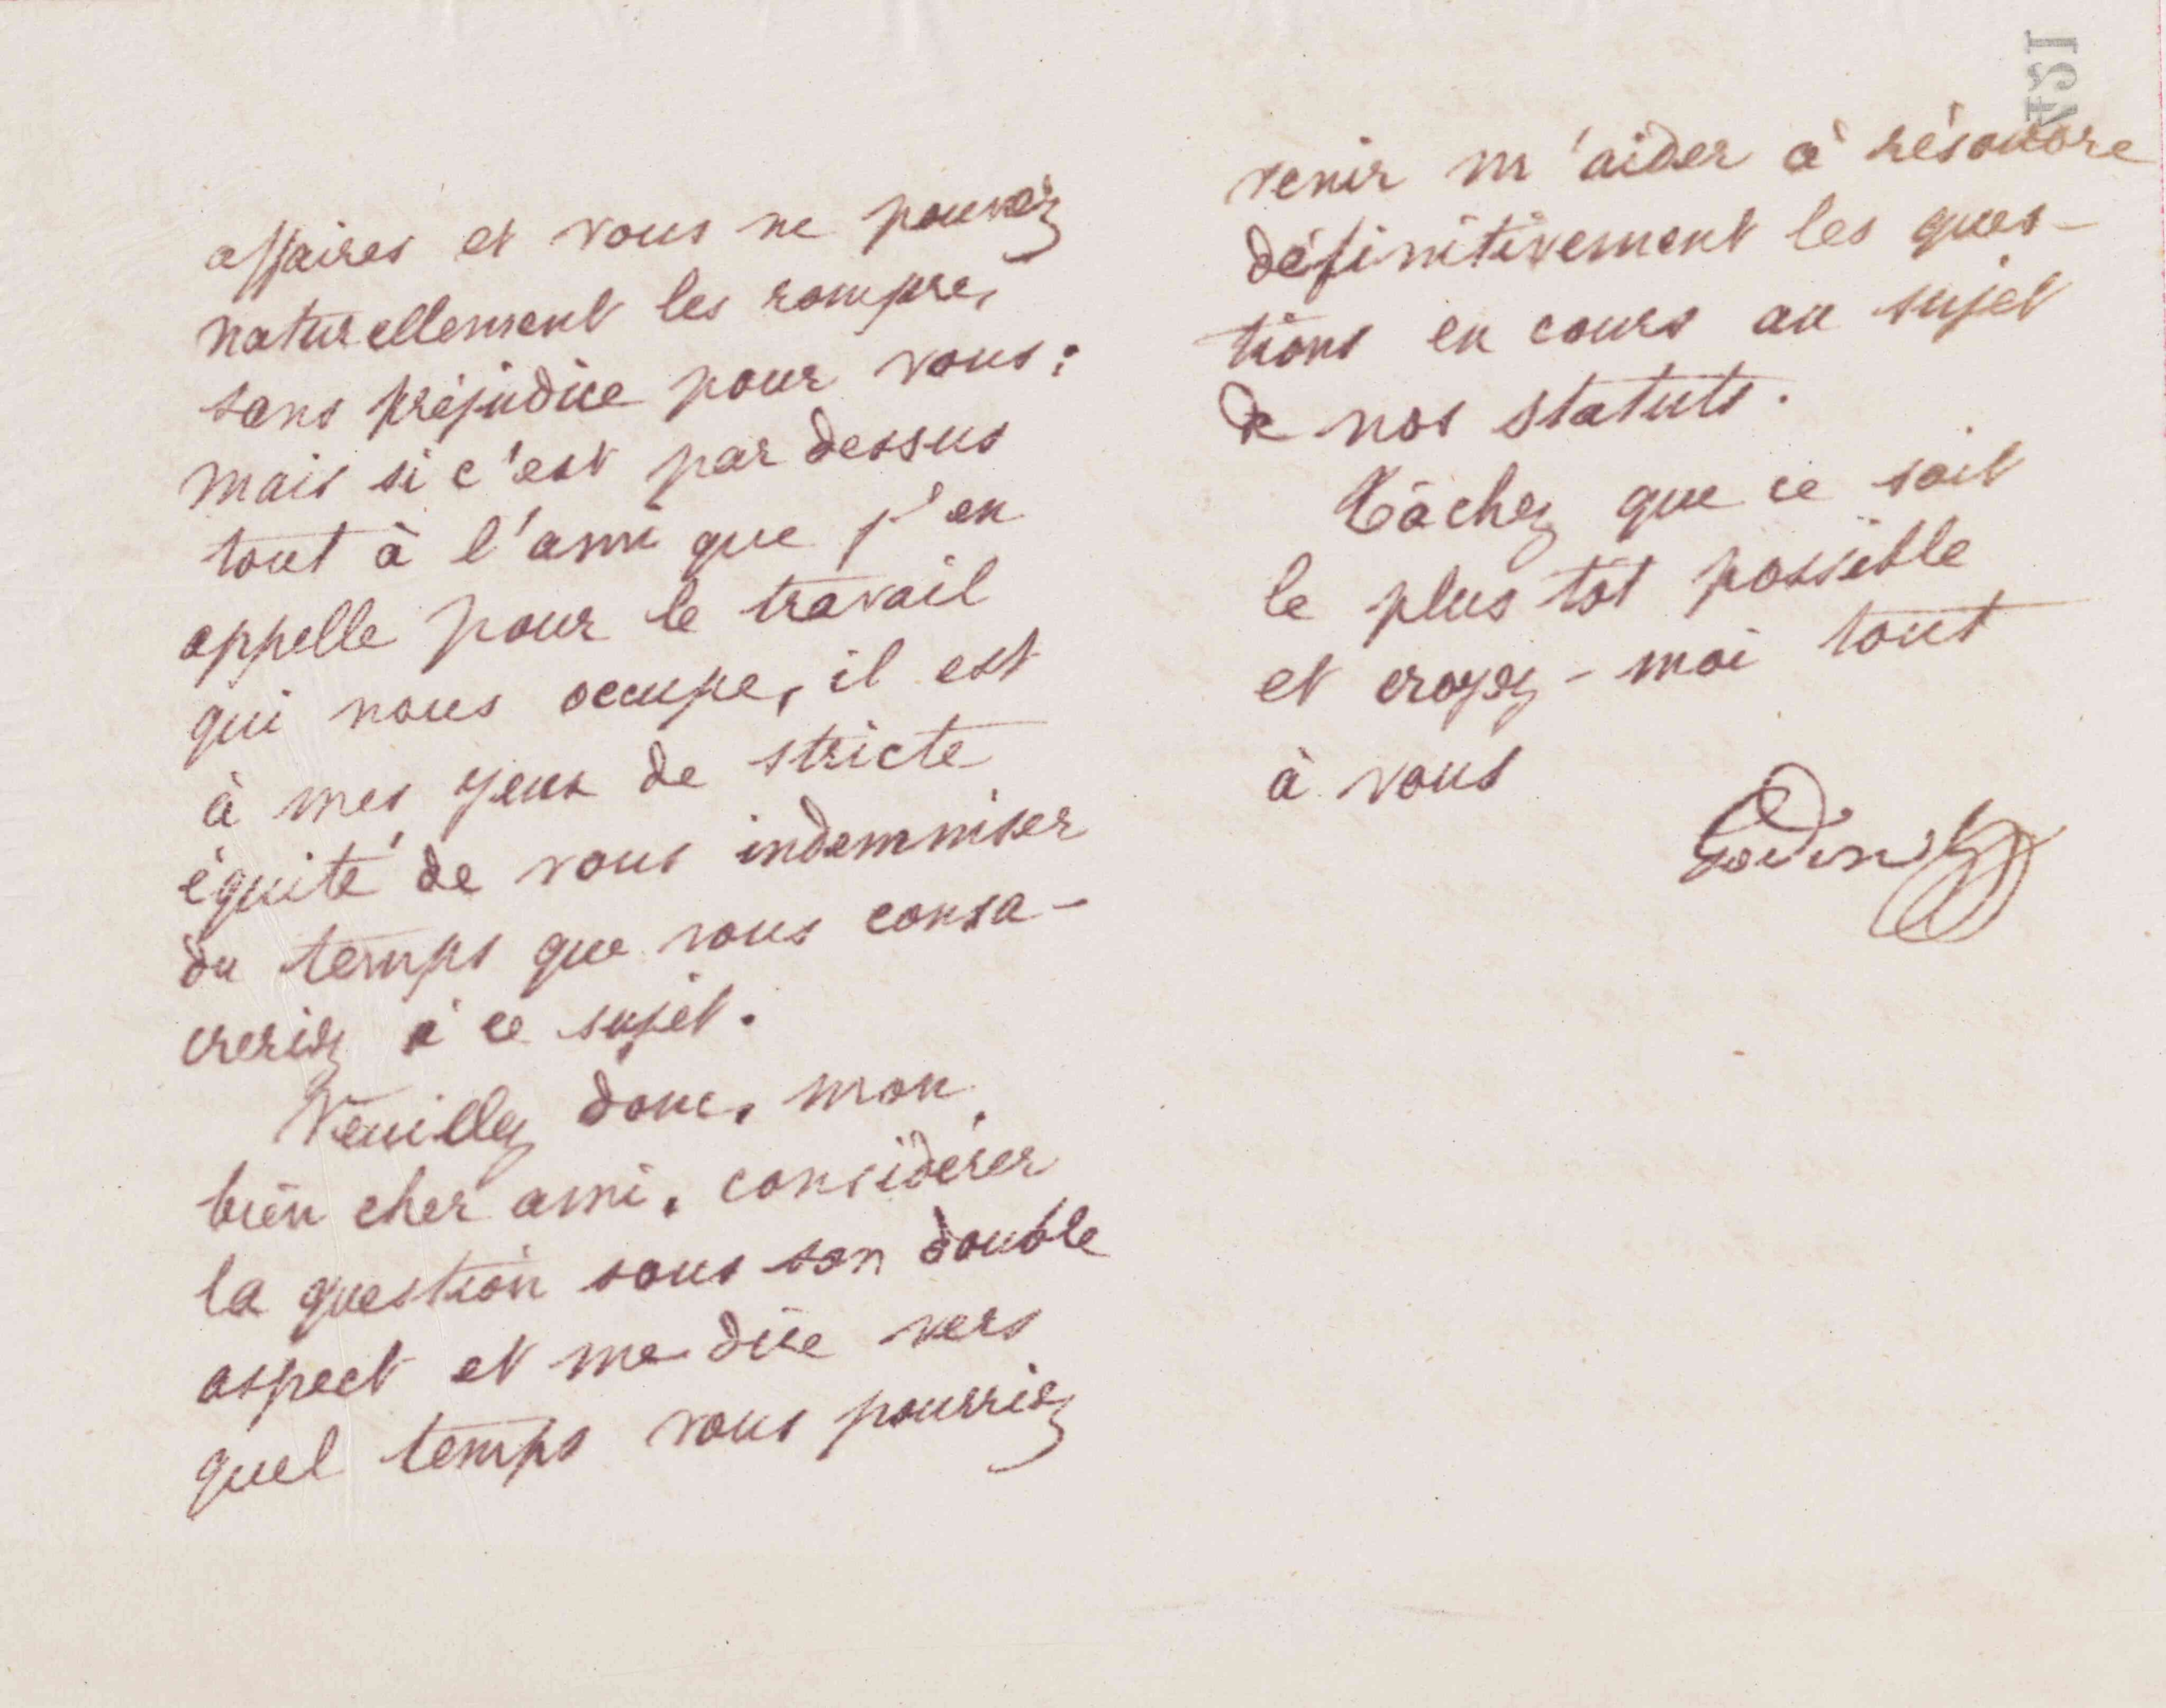 affaires et vous ne pouvez
naturellement les rompre,
sans préjudice pour vous :
mais si c'est par dessus
tout à l'ami que j'en
appelle pour le travail
qui nous occupe, il est
à mes yeux de stricte
équité de vous indemniser
du temps que vous consa-
creriez à ce sujet.
Veuillez donc, mon
bien cher ami, considérer
la question sous son double
aspect et me dire vers
quel temps vous pourriez
venir m'aider à résoudre
définitivement les ques-
tions en cours au sujet
de nos statuts.
Tâchez que ce soit
le plus tôt possible
et croyez-moi tout
à vous
Godin